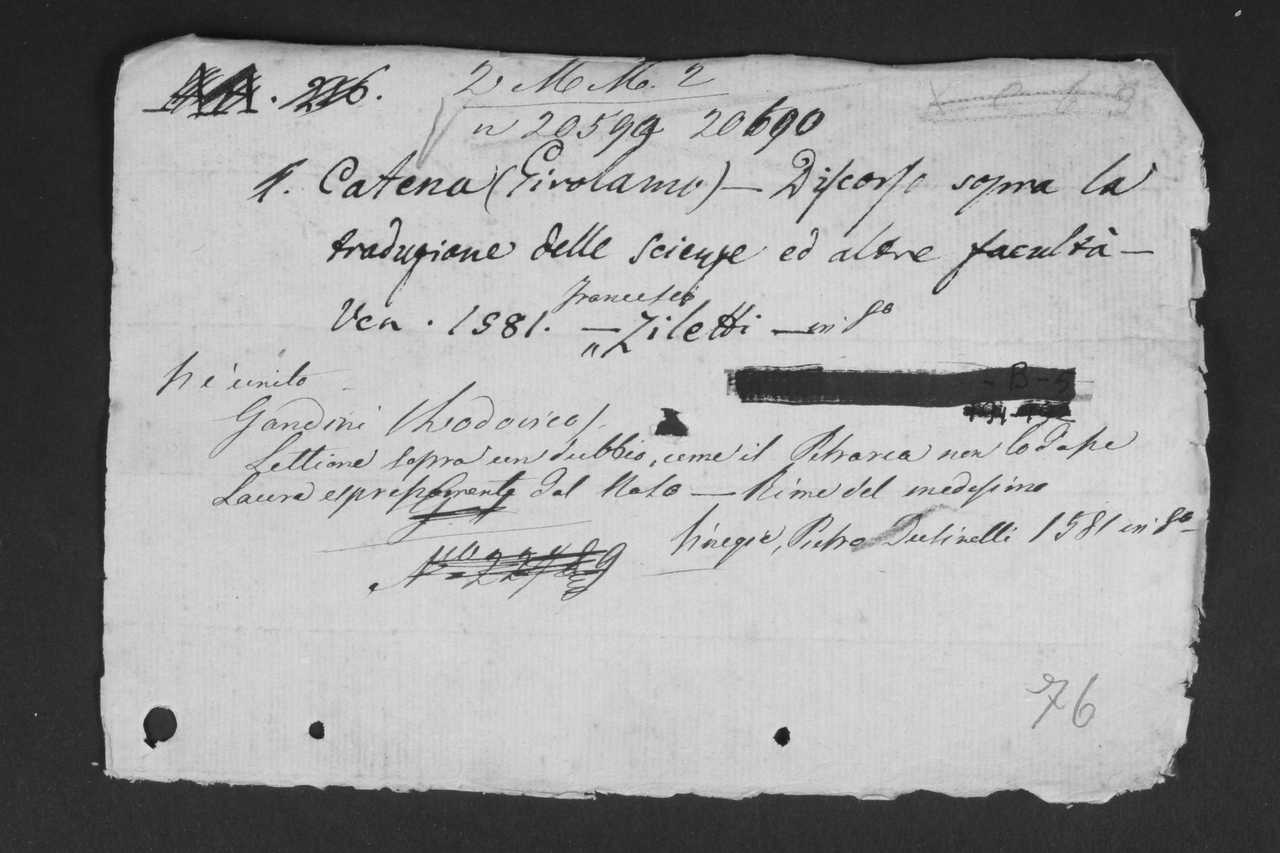 2 M M. 2
n 20599 20690
1. Catena (Girolamo) — Discorso sopra la
traduzione delle scienze ed altre facultà —
Francesco
Ven. 1581. — „ Ziletti — in 8o
Vi è unito
Gandini (Lodovico).
Lettione sopra un dubbio, come il Petrarca non lodasse
Laura espressamente dal Naso — Rime del medesimo
Vinegia, Pietro 1581 in 8o
76